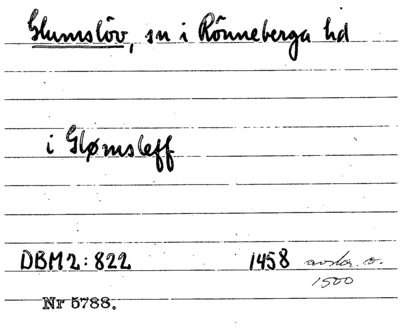 Glumslöv, sn i Rönneberga hd
i Glømsleff
DBM 2: 822 1458 avskr. o.
1500
Nr 5788.